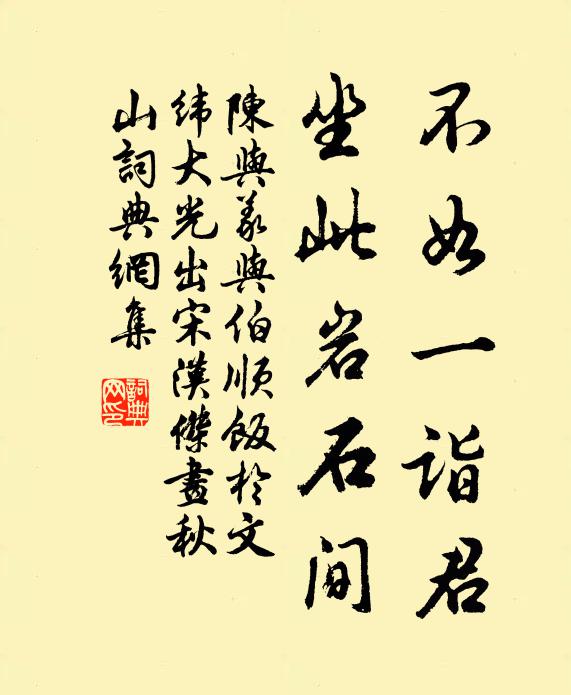 不如一詣君
坐此岩石间
陳與義與伯順飯於文
緯大光出宋漢傑畫秋
山詞典網集
詞典
网印